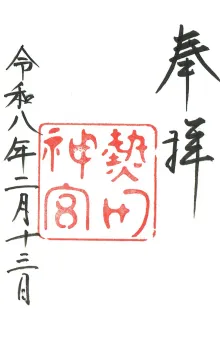 奉拝
熱田神宮
令和八年二月十三日